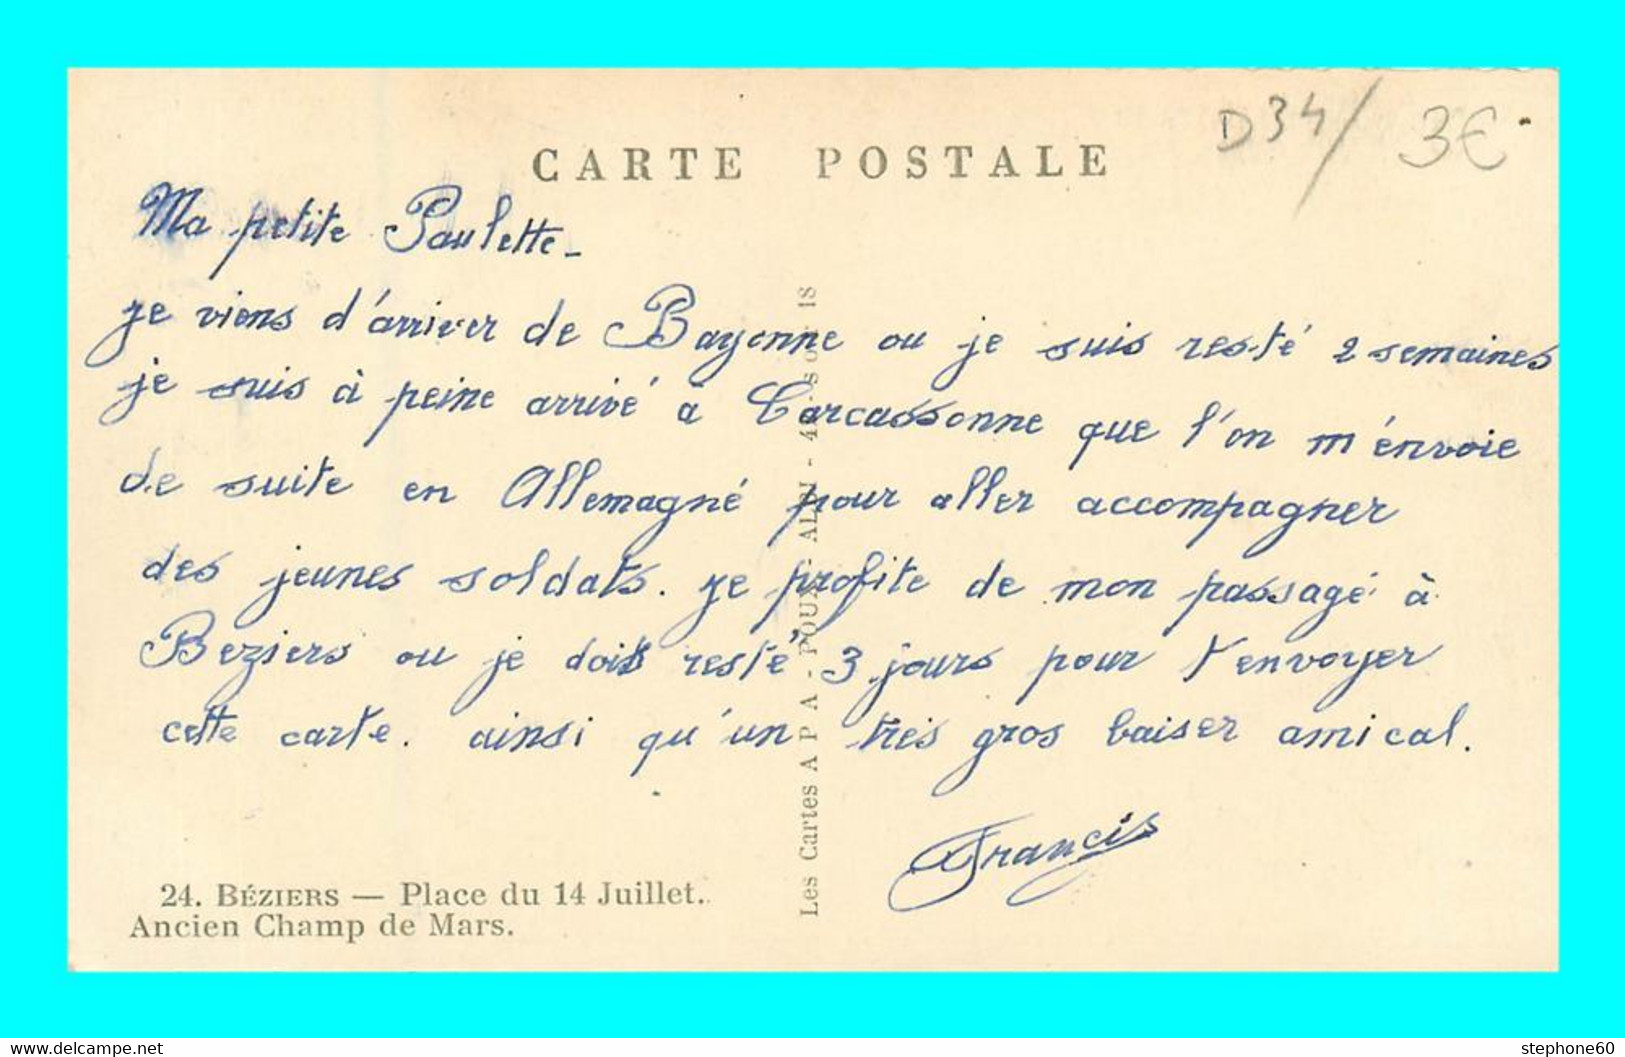 D34/ 3€
CARTE POSTALE
Ma petite Paulette -
je viens d'arriver de Bayonne ou je suis resté 2 semaines
je suis à peine arrivé à Carcassonne que l'on m'énvoie
de suite en Allemagné pour aller accompagner
des jeunes soldats. je profite de mon passagé à
Beziers ou je dois resté 3 jours pour t'envoyer
cette carte. ainsi qu'un tres gros baiser amical.
Francis
24. BÉZIERS — Place du 14 Juillet.
Ancien Champ de Mars.
Les Cartes A P A - POUX
stephone60